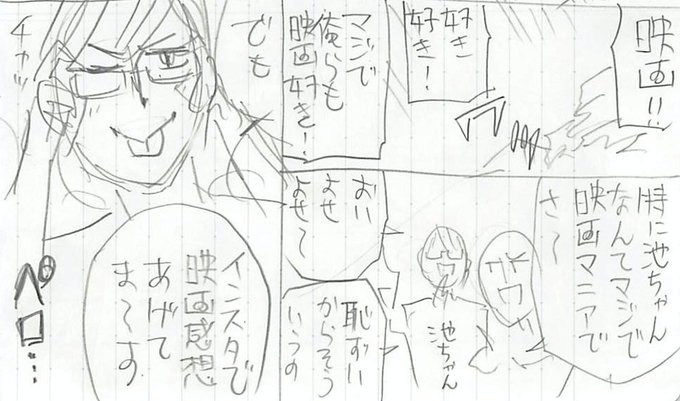 映画!!
好き
好き!
マジで
俺らも
映画好き!
特に池ちゃん
なんてマジで
映画マニアで
さ〜
池ちゃん
おい
よせ
よせ〜
恥ずい
からそう
いうの
でも
チャッ
インスタで
映画感想
あげて
ま〜す
ペロ…